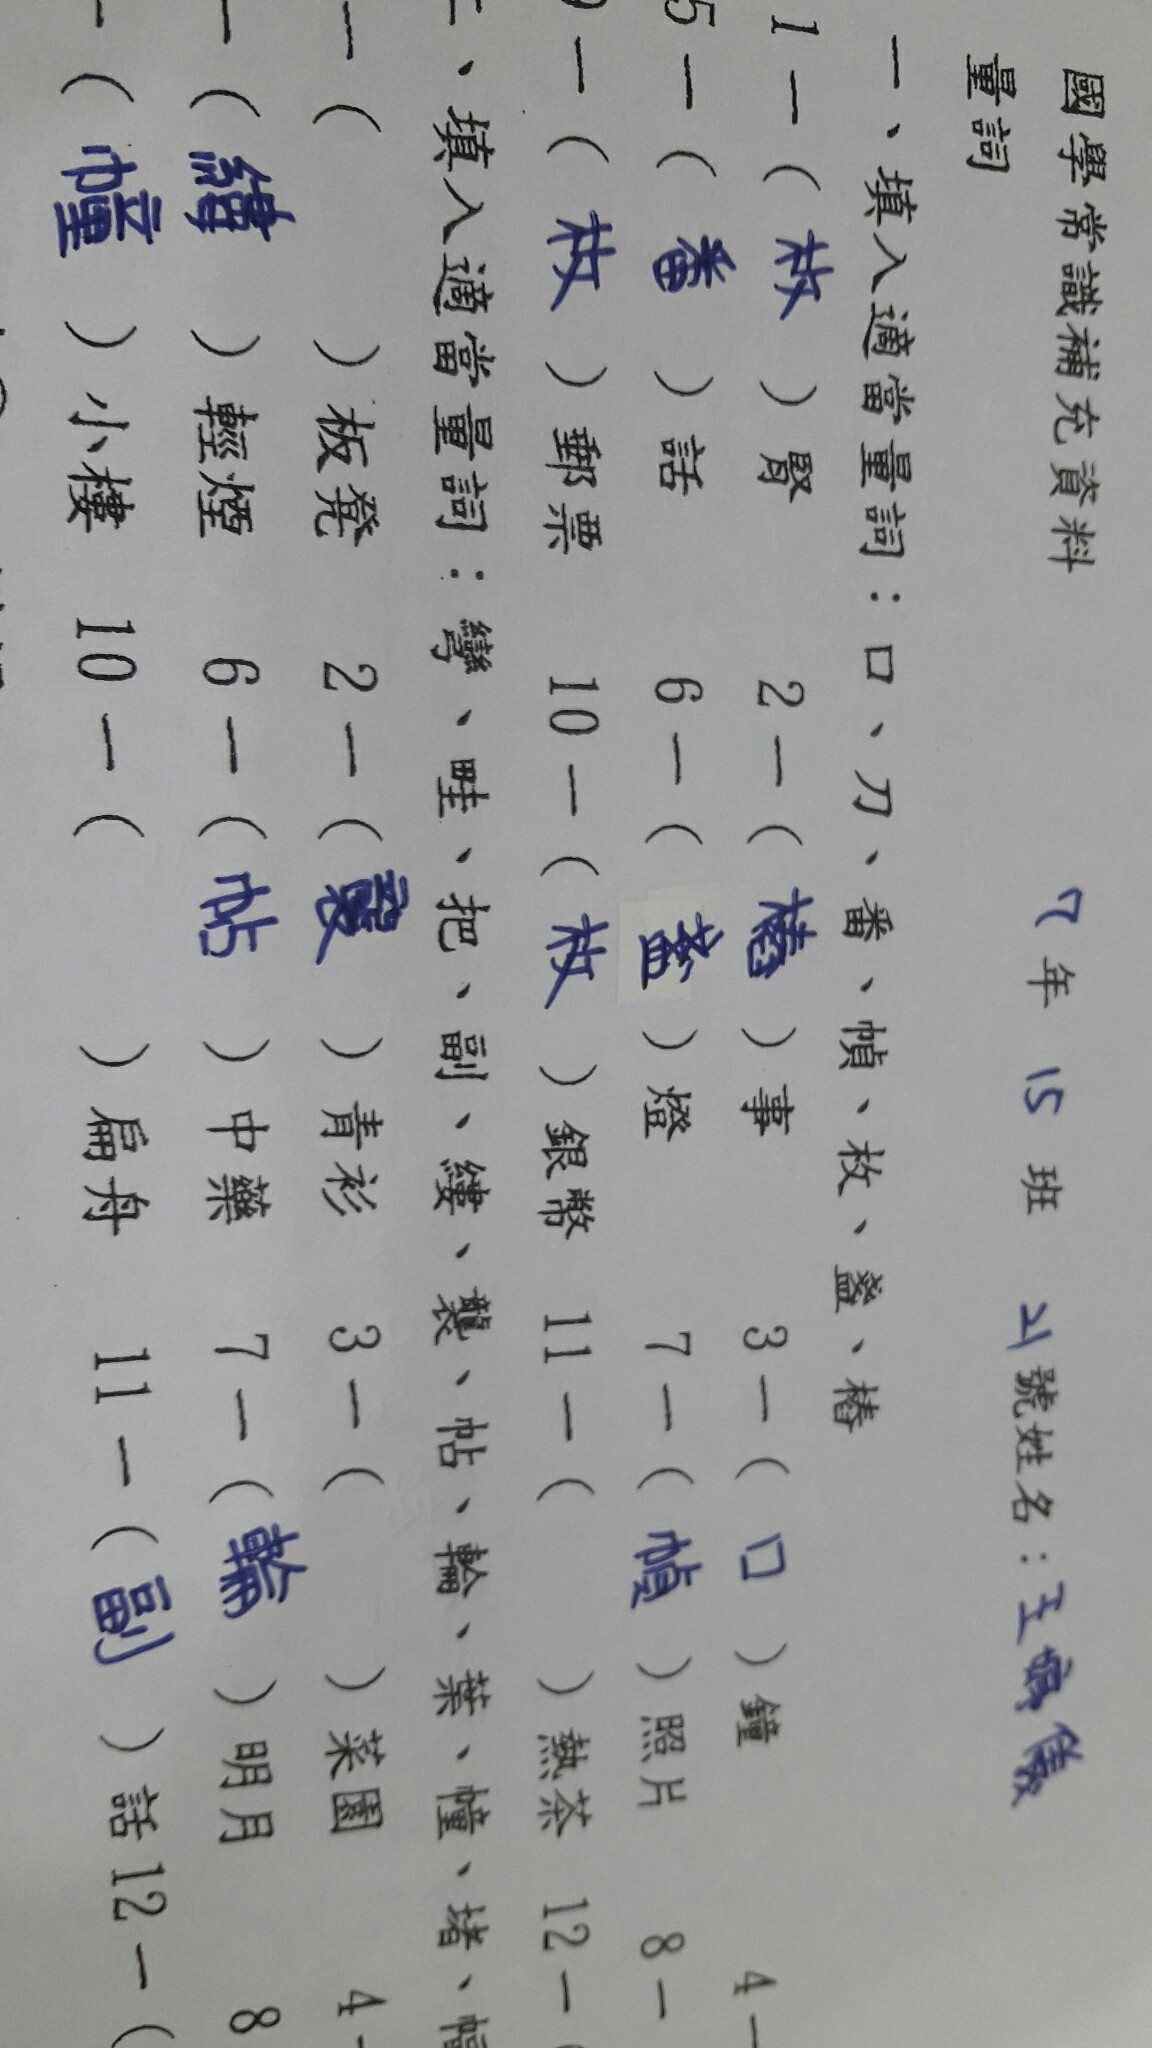 國學常識補充資料 7年 15班 21號姓名：王
量詞
一、填入適當量詞：口、刀、番、幀、枚、盞、樁
1 一（ 枚 ）腎 2 一（ 樁 ）事 3 一（ 口 ）鐘 4 一
5 一（ 番 ）話 6 一（ 盞 ）燈 7 一（ 幀 ）照片 8 一
9 一（ 枚 ）郵票 10 一（ 枚 ）銀幣 11 一（ ）熱茶 12 一（
二、填入適當量詞：彎、畦、把、副、縷、襲、帖、輪、葉、幢、堵、幅
一（ ）板凳 2 一（ 襲 ）青衫 3 一（ ）菜園 4 一
一（ 縷 ）輕煙 6 一（ 帖 ）中藥 7 一（ 輪 ）明月 8
一（ 幢 ）小樓 10 一（ ）扁舟 11 一（ 副 ）話 12 一（